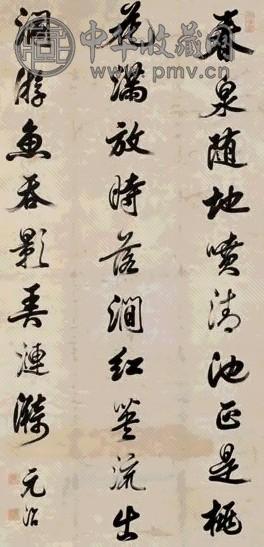 春泉随地喷清池正是桃
花满放时落涧红英流出
洞游鱼吞影弄涟漪
元治
中华收藏网
www.pmv.cn